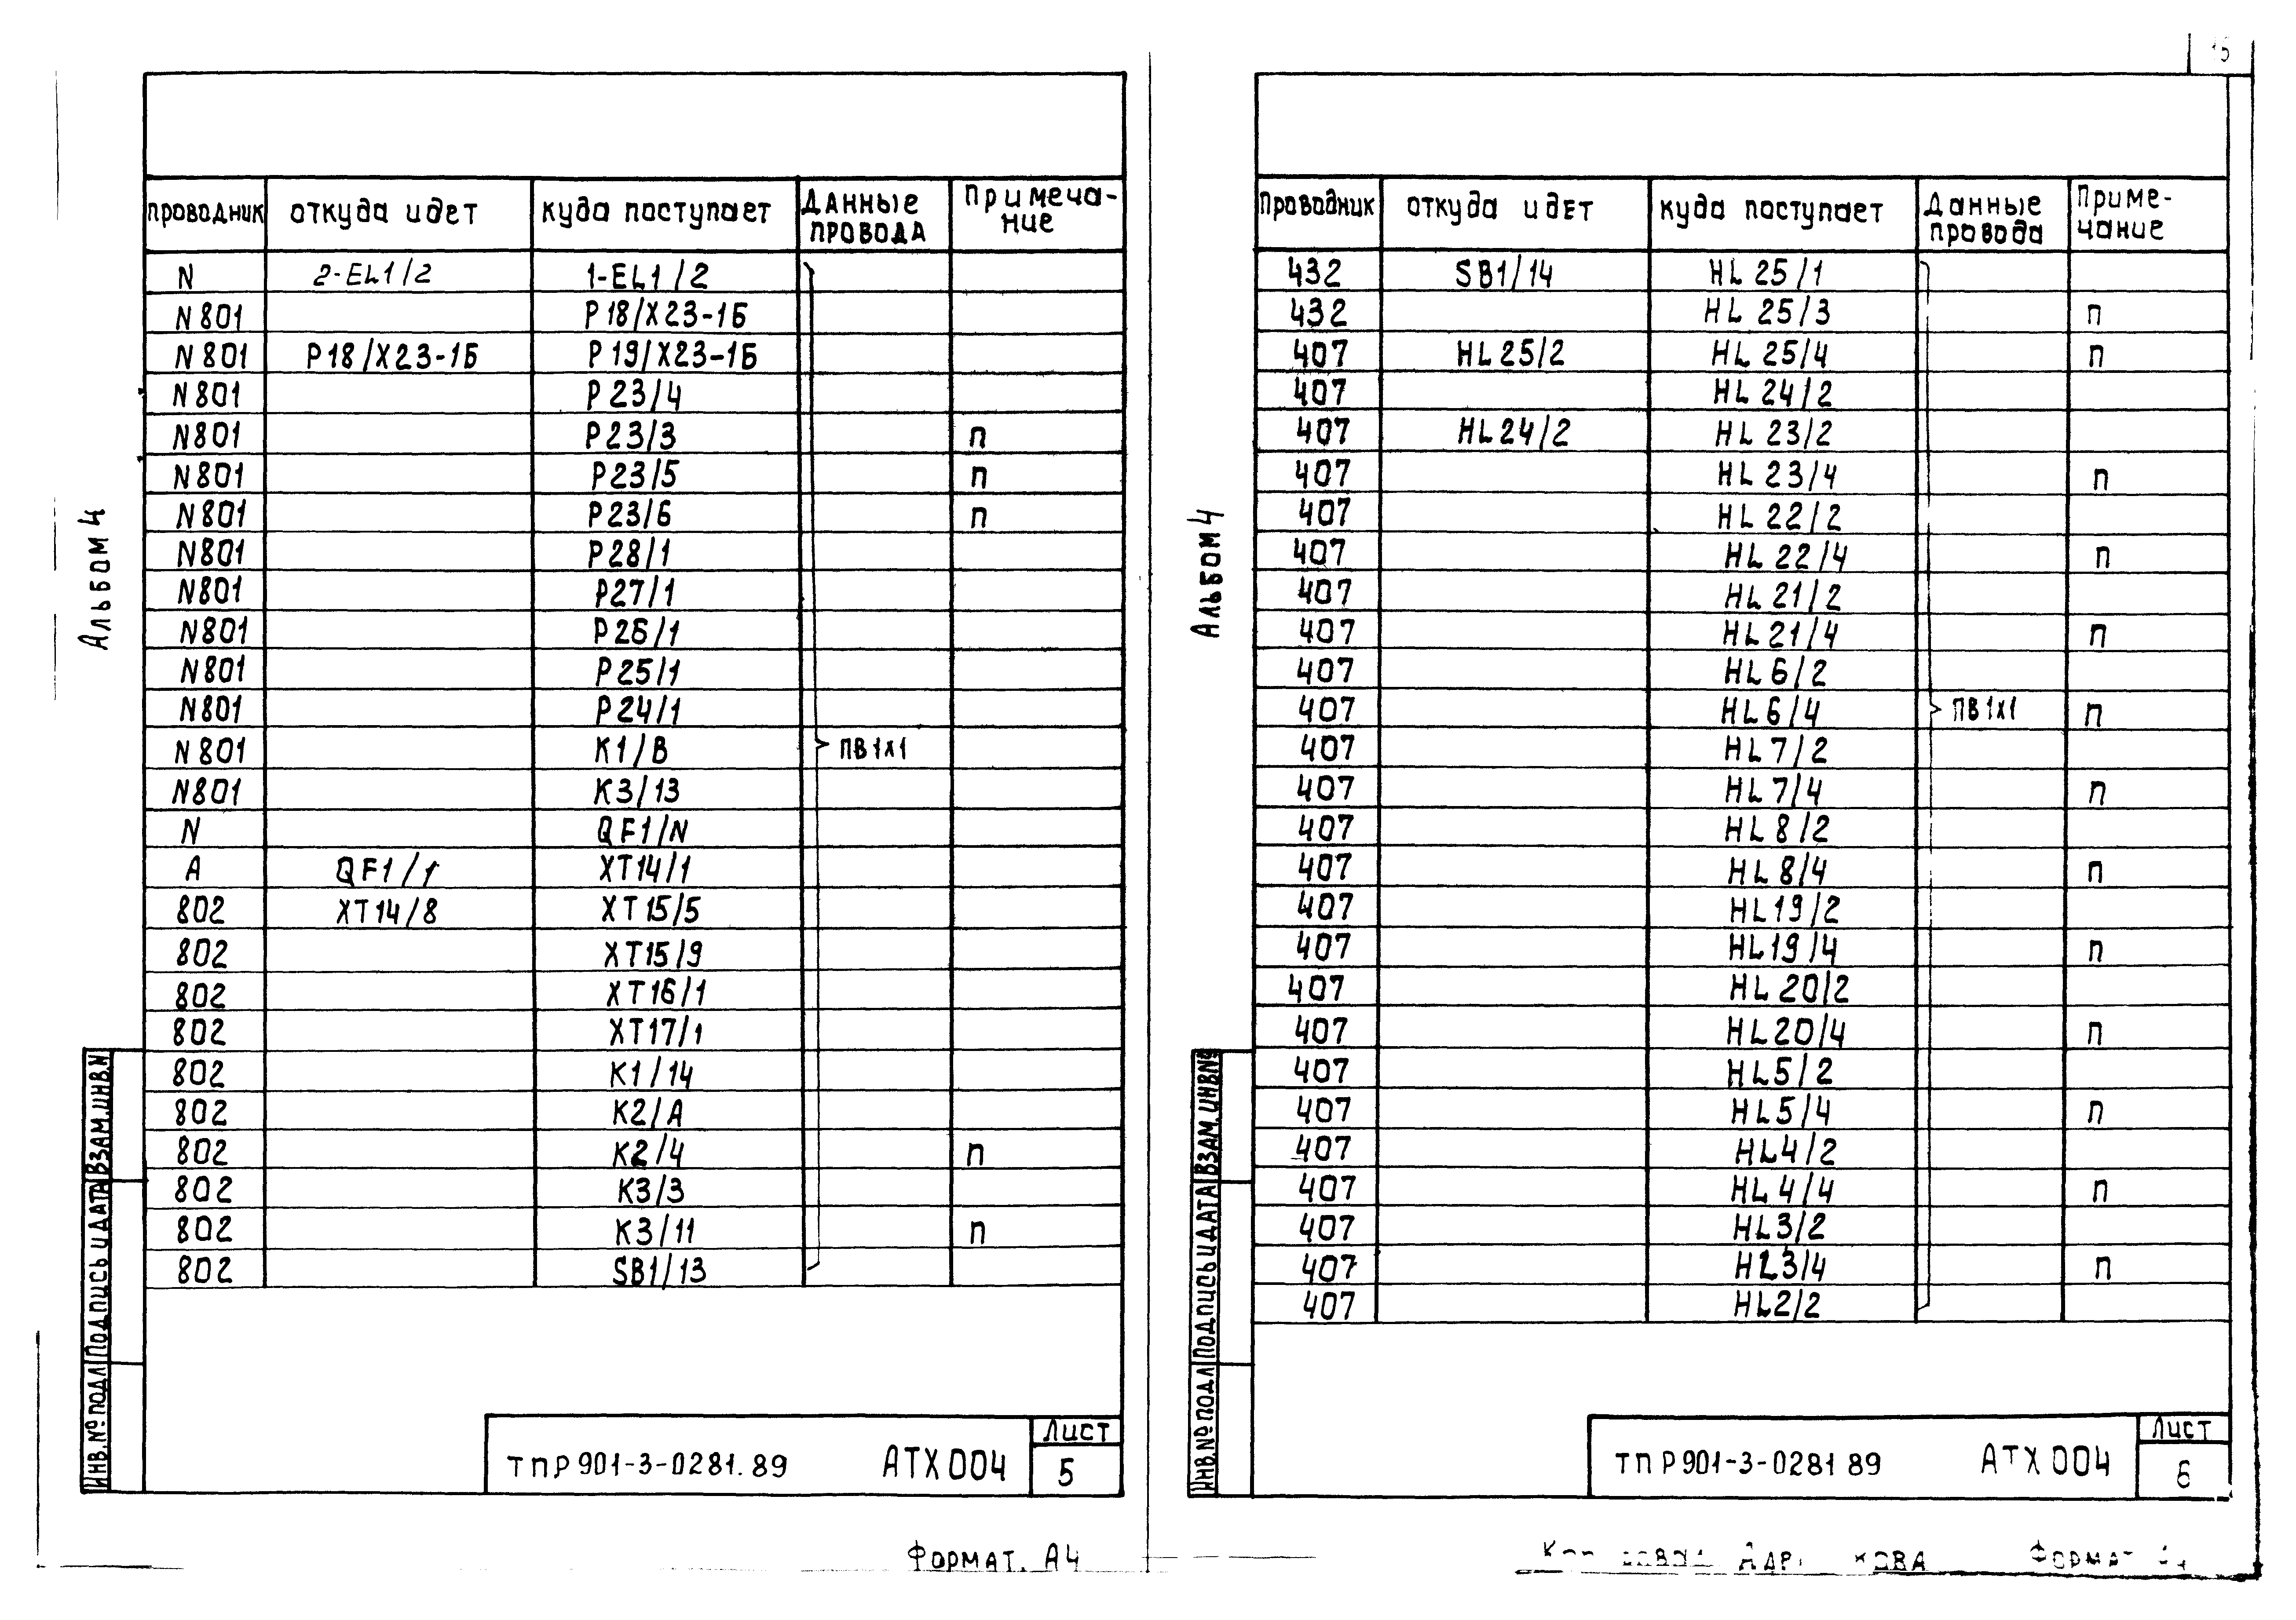 15
Альбом 4
Проводник откуда идет куда поступает Данные провода Примечание
N 2-EL1/2 1-EL1/2
N801 P18/X23-1Б
N801 P18/X23-1Б P19/X23-1Б
N801 P23/4
N801 P23/3 п
N801 P23/5 п
N801 P23/6 п
N801 P28/1
N801 P27/1
N801 P26/1
N801 P25/1
N801 P24/1
N801 K1/B ПВ1х1
N801 K3/13
N QF1/N
A QF1/1 XT14/1
802 XT14/8 XT15/5
802 XT15/9
802 XT16/1
802 XT17/1
802 K1/14
802 K2/A
802 K2/4 п
802 K3/3
802 K3/11 п
802 SB1/13
ИНВ.№ ПОДЛ ПОДПИСЬ И ДАТА ВЗАМ.ИНВ.N
ТПР 901-3-0281.89 АТХ 004
Лист
5
Формат. А4
Альбом 4
Проводник откуда идет куда поступает Данные провода Примечание
432 SB1/14 HL25/1
432 HL25/3 п
407 HL25/2 HL25/4 п
407 HL24/2
407 HL24/2 HL23/2
407 HL23/4 п
407 HL22/2
407 HL22/4 п
407 HL21/2
407 HL21/4 п
407 HL6/2
407 HL6/4 ПВ1х1 п
407 HL7/2
407 HL7/4 п
407 HL8/2
407 HL8/4 п
407 HL19/2
407 HL19/4 п
407 HL20/2
407 HL20/4 п
407 HL5/2
407 HL5/4 п
407 HL4/2
407 HL4/4 п
407 HL3/2
407 HL3/4 п
407 HL2/2
ИНВ.№ ПОДЛ ПОДПИСЬ И ДАТА ВЗАМ.ИНВ№
ТПР 901-3-0281 89 АТХ 004
Лист
6
Формат